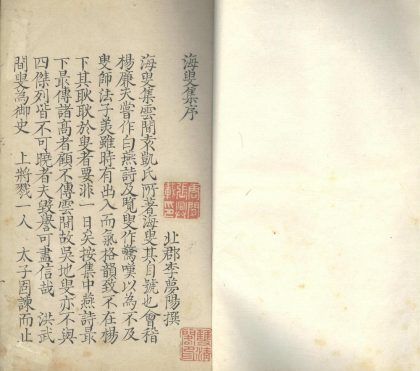 海叟集序
北郡李夢陽撰
海叟集雲間袁凱氏所著海叟其自號也會稽
楊廉夫嘗作白燕詩及覧叟作驚嘆以為不及
叟師法子美雖時有出入而氣格韻致不在楊
下其耿耿於叟者要非一日矣按集中燕詩最
下最傳諸高者顧不傳雲間故吳地叟亦不與
四傑列皆不可曉者夫毀譽可盡信哉　洪武
間叟為御史　上將戮一人　太子固諫而止